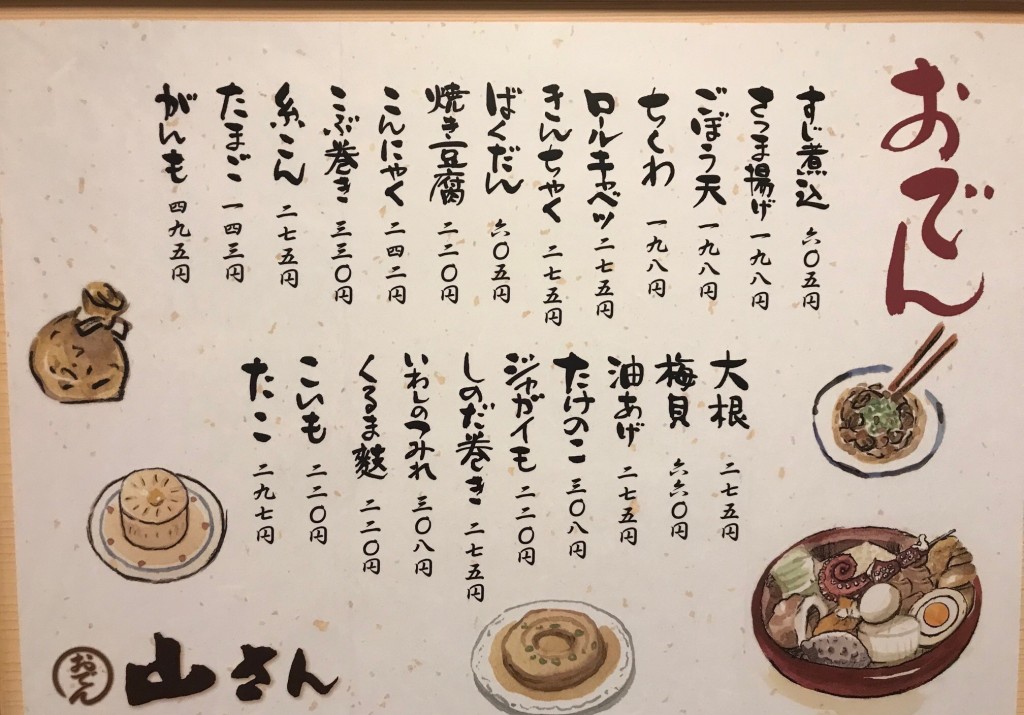 おでん
すじ煮込 六〇五円
さつま揚げ 一九八円
ごぼう天 一九八円
ちくわ 一九八円
ロールキャベツ 二七五円
きんちゃく 二七五円
ばくだん 六〇五円
焼き豆腐 二二〇円
こんにゃく 二四二円
こぶ巻き 三三〇円
糸こん 二七五円
たまご 一四三円
がんも 四九五円
大根 二七五円
梅貝 六六〇円
油あげ 二七五円
たけのこ 三〇八円
ジャガイモ 二二〇円
しのだ巻き 二七五円
いわしのつみれ 三〇八円
くるま麩 二二〇円
こいも 二二〇円
たこ 二九七円
おでん 山さん